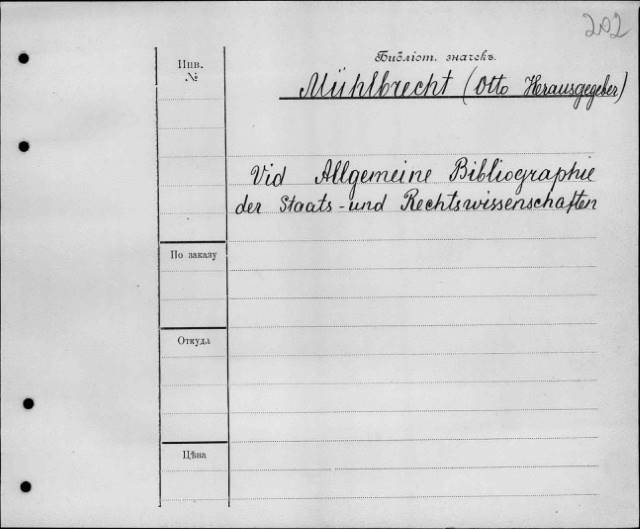 202
Библіот. значекъ.
Инв.
№
Mühlbrecht (Otto Herausgegeber)
Vid Allgemeine Bibliographie
der Staats-und Rechtswissenschaften
По заказу
Откуда
Цѣна